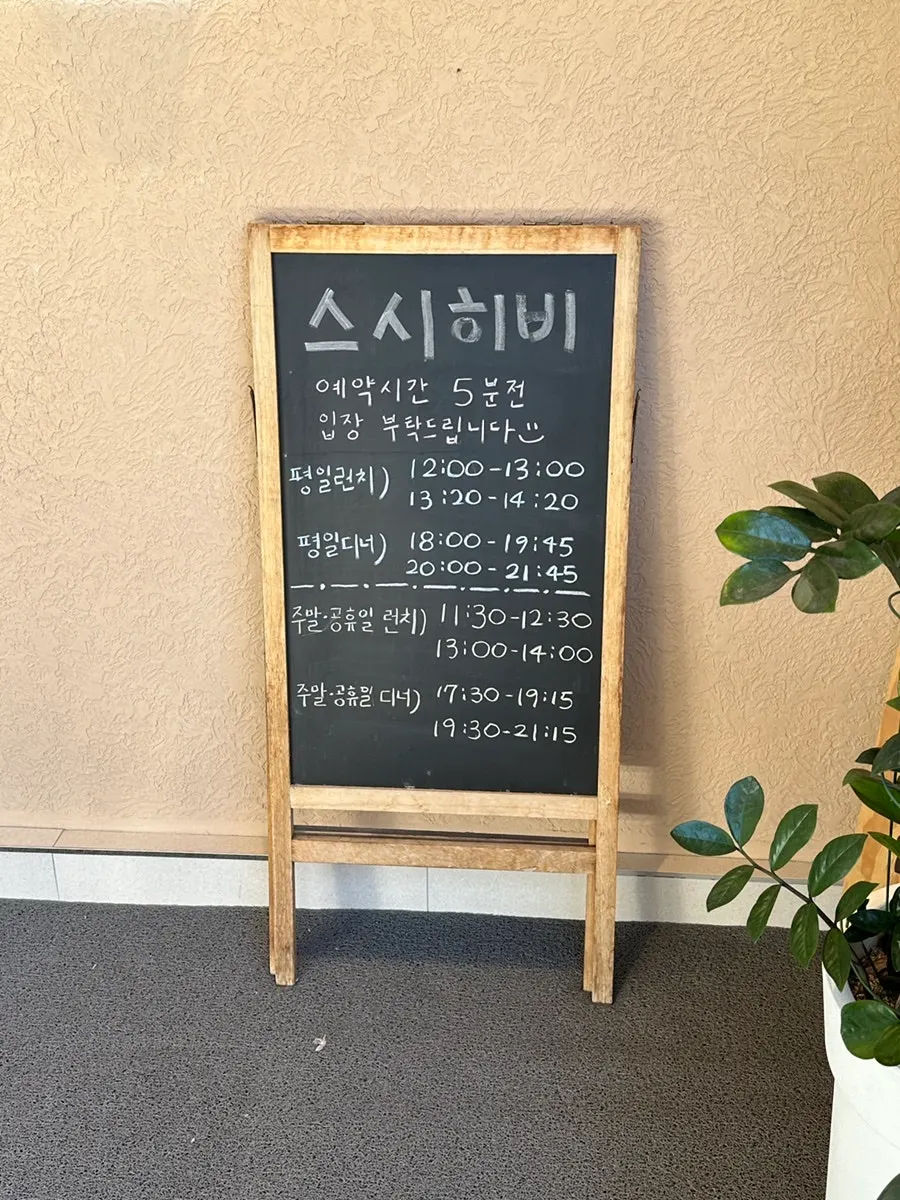 스시히비
예약시간 5분전
입장 부탁드립니다
평일런치) 12:00-13:00
13:20-14:20
평일디너) 18:00-19:45
20:00-21:45
주말·공휴일 런치) 11:30-12:30
13:00-14:00
주말·공휴일 디너) 17:30-19:15
19:30-21:15